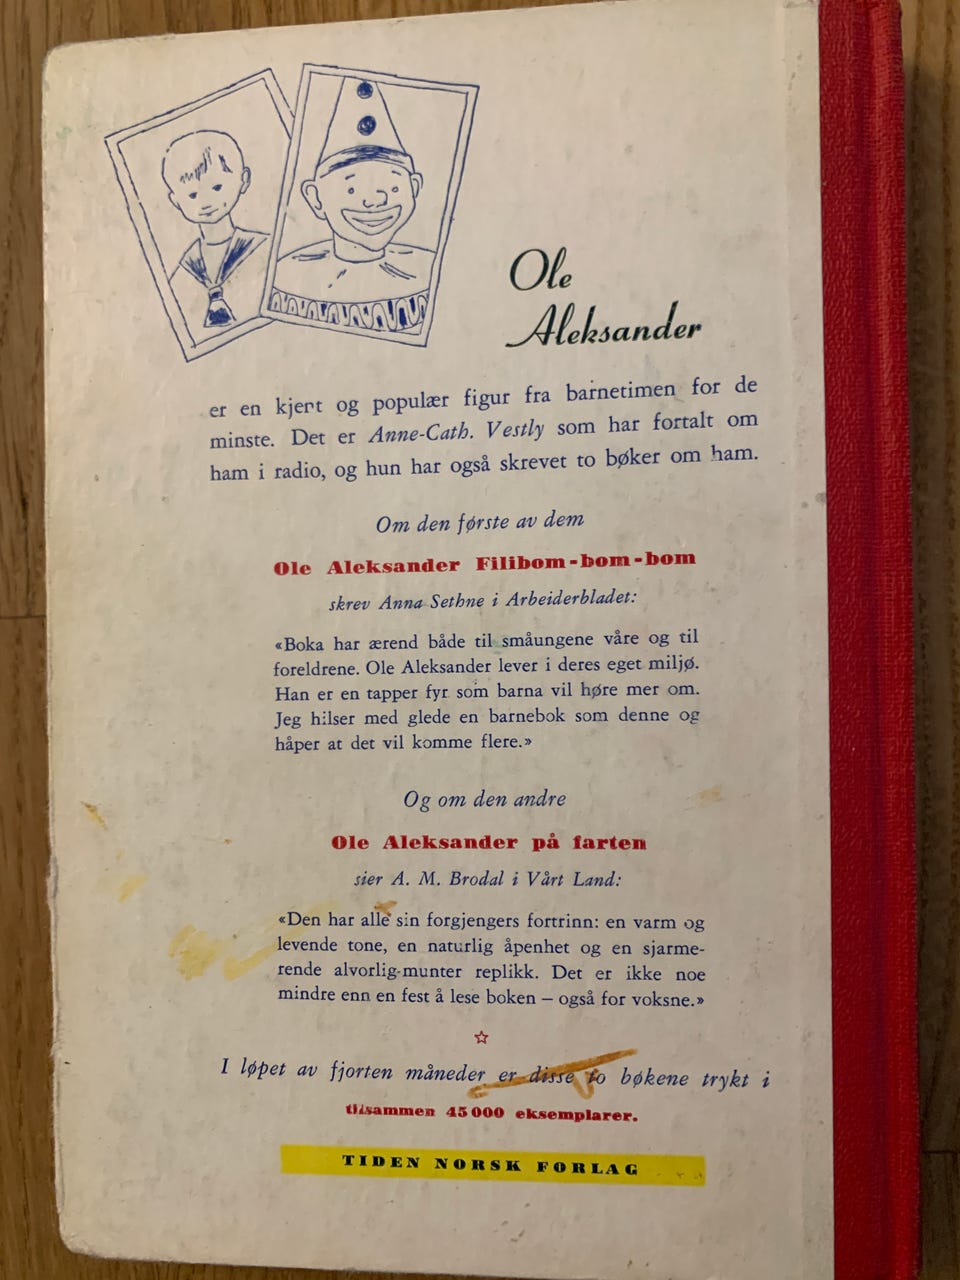 Ole
Aleksander
er en kjent og populær figur fra barnetimen for de
minste. Det er Anne-Cath. Vestly som har fortalt om
ham i radio, og hun har også skrevet to bøker om ham.
Om den første av dem
Ole Aleksander Filibom-bom-bom
skrev Anna Sethne i Arbeiderbladet:
«Boka har ærend både til småungene våre og til
foreldrene. Ole Aleksander lever i deres eget miljø.
Han er en tapper fyr som barna vil høre mer om.
Jeg hilser med glede en barnebok som denne og
håper at det vil komme flere.»
Og om den andre
Ole Aleksander på farten
sier A. M. Brodal i Vårt Land:
«Den har alle sin forgjengers fortrinn: en varm og
levende tone, en naturlig åpenhet og en sjarme-
rende alvorlig-munter replikk. Det er ikke noe
mindre enn en fest å lese boken – også for voksne.»
☆
I løpet av fjorten måneder er disse to bøkene trykt i
tilsammen 45 000 eksemplarer.
TIDEN NORSK FORLAG